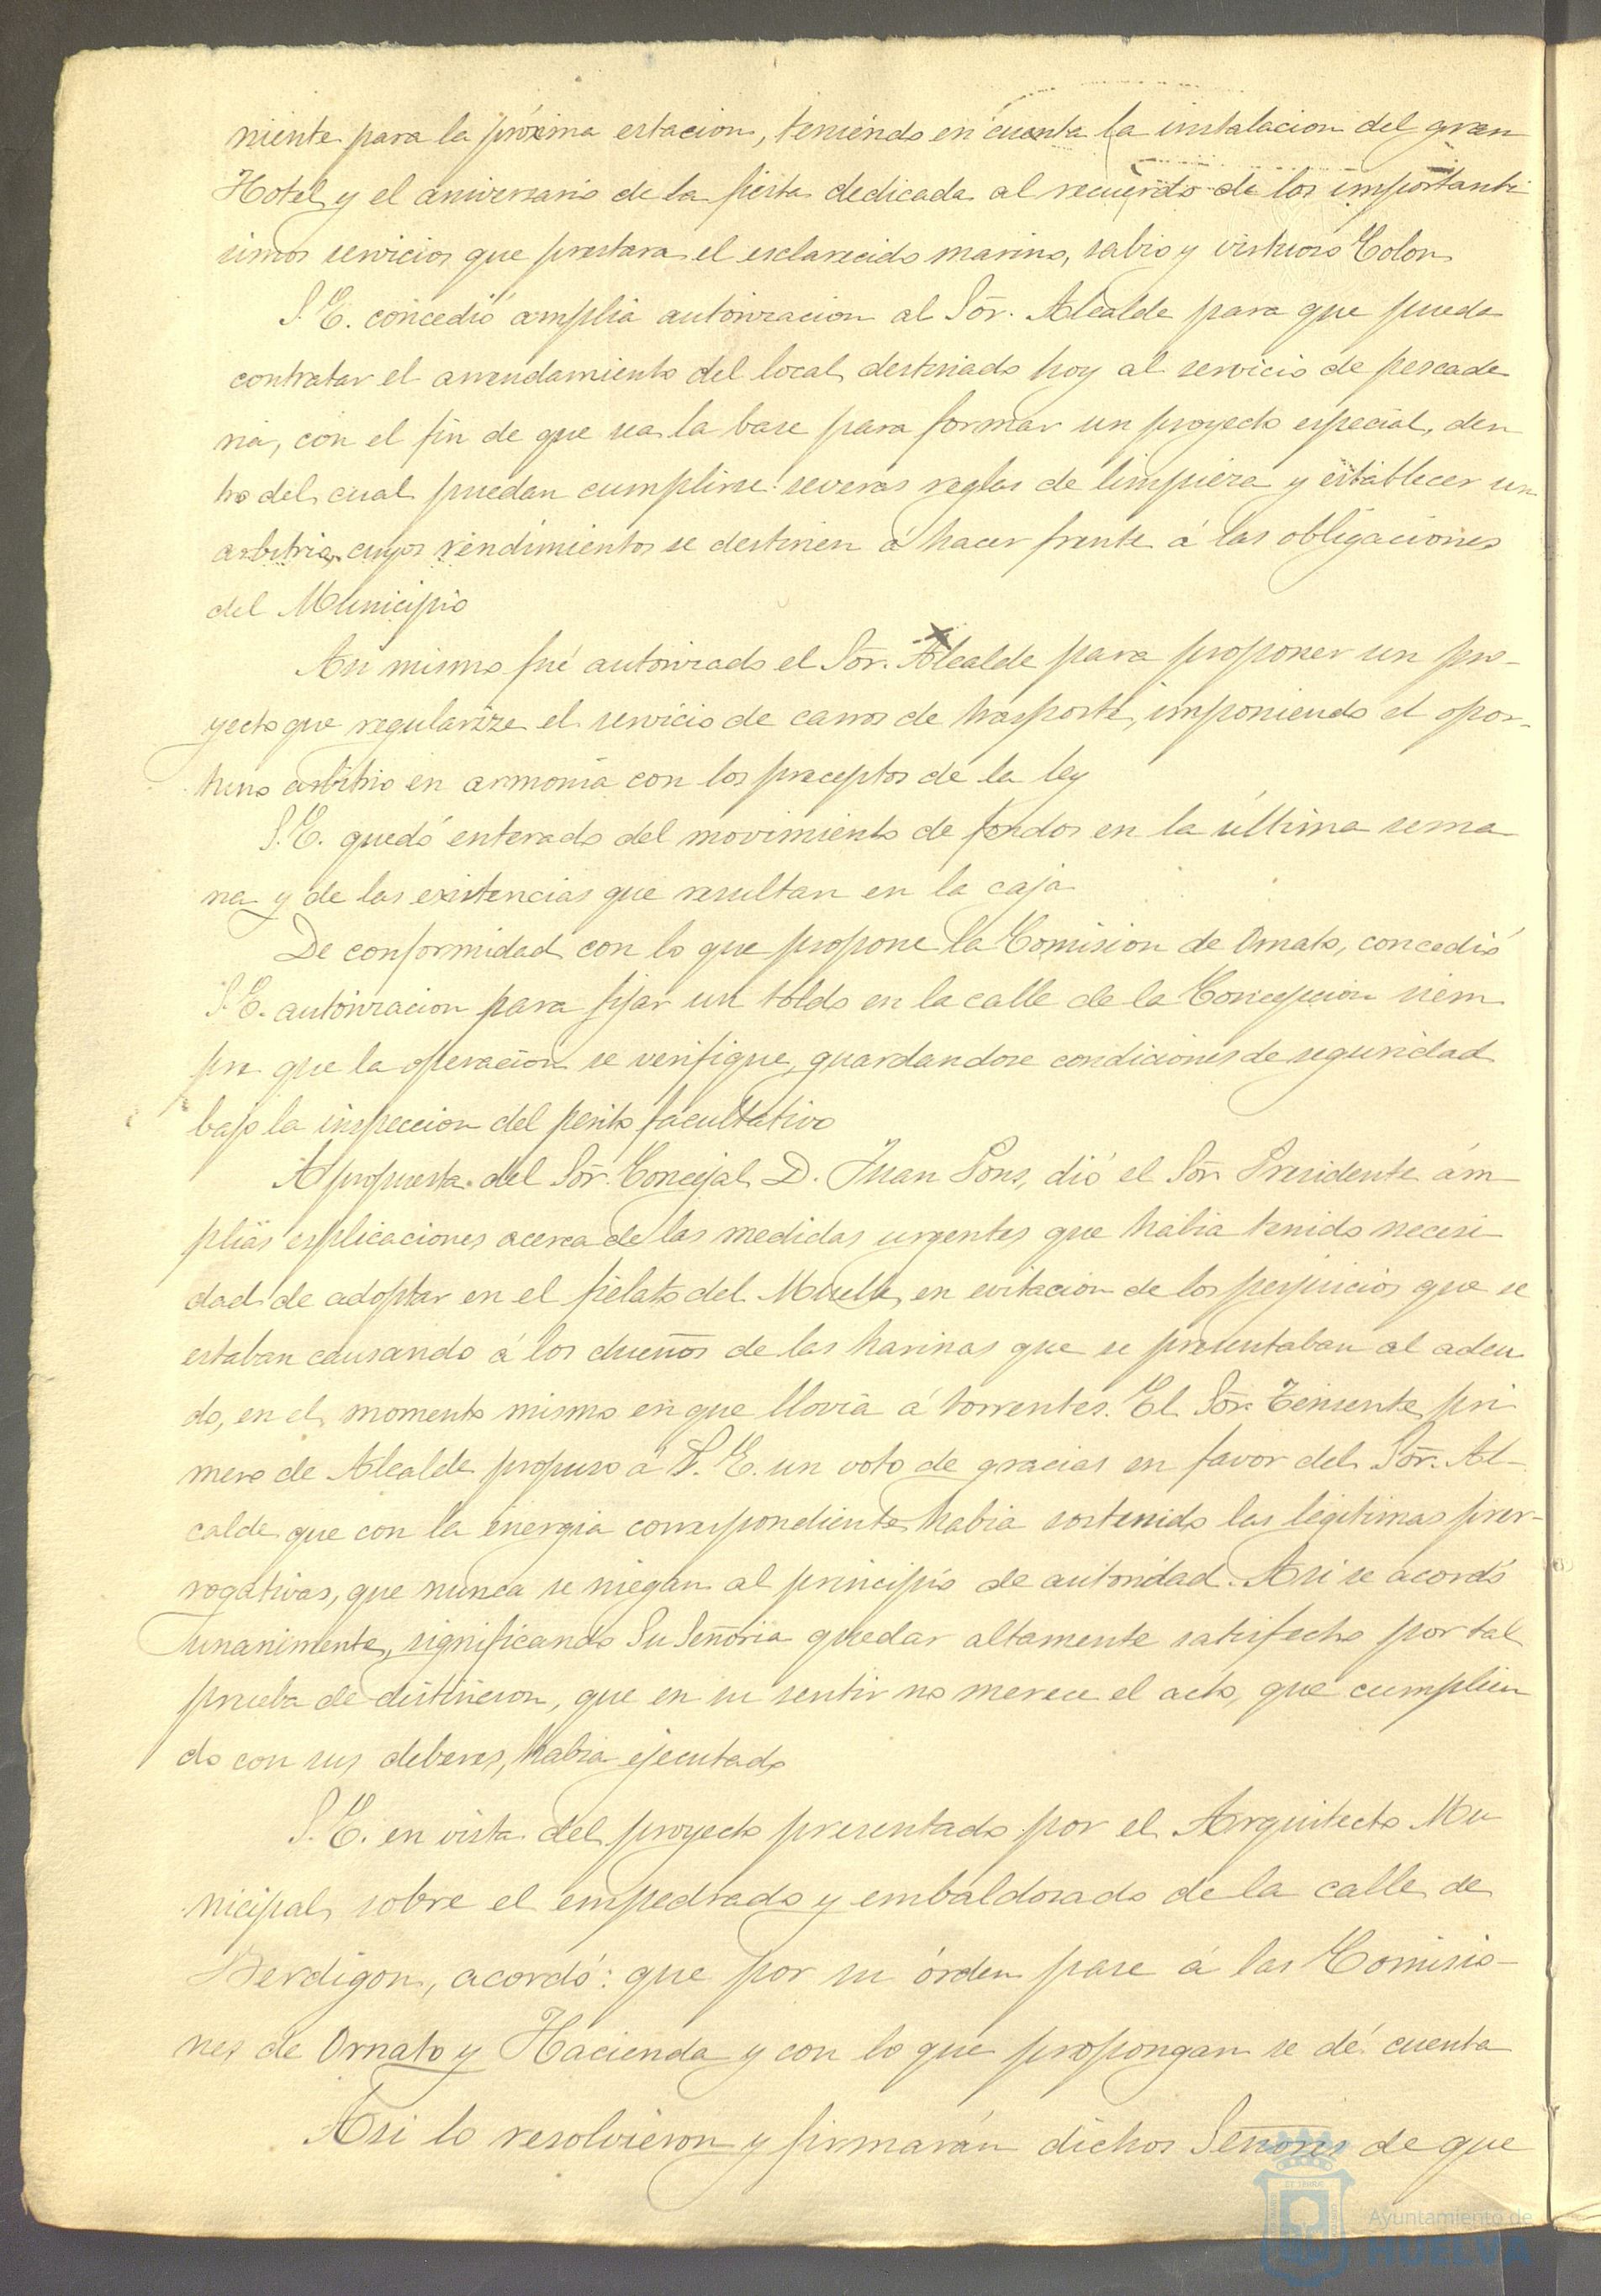 niente para la próxima estacion, teniendo en cuenta la instalacion del gran
Hotel y el aniversario de la fiesta dedicada al recuerdo de los importanti
simos servicios que prestara el esclarecido marino, sabio y virtuoso Colon
S. E. concedió amplia autorizacion al Sõr. Alcalde para que pueda
contratar el arrendamiento del local destinado hoy al servicio de pescade
ria, con el fin de que sea la base para formar un proyecto especial, den
tro del cual puedan cumplirse severas reglas de limpieza y establecer un
arbitrio cuyos rendimientos se destinen á hacer frente á las obligaciones
del Municipio
Asi mismo fué autorizado el Sõr. Alcalde para proponer un pro-
yecto que regularize el servicio de carros de trasporte, imponiendo el opor-
tuno arbitrio en armonia con los preceptos de la ley
S. E. quedó enterado del movimiento de fondos en la última sema
na y de las existencias que resultan en la caja
De conformidad con lo que propone la Comision de Ornato, concedió
S. E. autorizacion para fijar un toldo en la calle de la Concepcion siem
pre que la operacion se verifique, guardandose condiciones de seguridad
bajo la inspeccion del perito facultativo
A propuesta del Sõr. Concejal D. Juan Pons, dió el Sõr. Presidente ám
plias esplicaciones acerca de las medidas urgentes que habia tenido necesi
dad de adoptar en el fielato del Muelle, en evitacion de los perjuicios que se
estaban causando á los dueños de las harinas que se presentaban al adeu
do, en el momento mismo en que llovia á torrentes. El Sõr. Teniente pri
mero de Alcalde propuso á S. E. un voto de gracias en favor del Sõr. Al-
calde que con la energia correspondiente habia sostenido las legitimas prer-
rogativas, que nunca se niegan al principio de autoridad. Asi se acordó
unanimente, significando Su Señoria quedar altamente satisfecho por tal
prueba de distincion, que en su sentir no merece el acto, que cumplien
do con sus deberes, habia ejecutado
S. E. en vista del proyecto presentado por el Arquitecto Mu
nicipal sobre el empedrado y embaldosado de la calle de
Berdigon, acordó: que por su órden pase á las Comisio-
nes de Ornato y Hacienda y con lo que propongan se dé cuenta
Asi lo resolvieron y firmarán dichos Señores de que
Ayuntamiento de
HUELVA